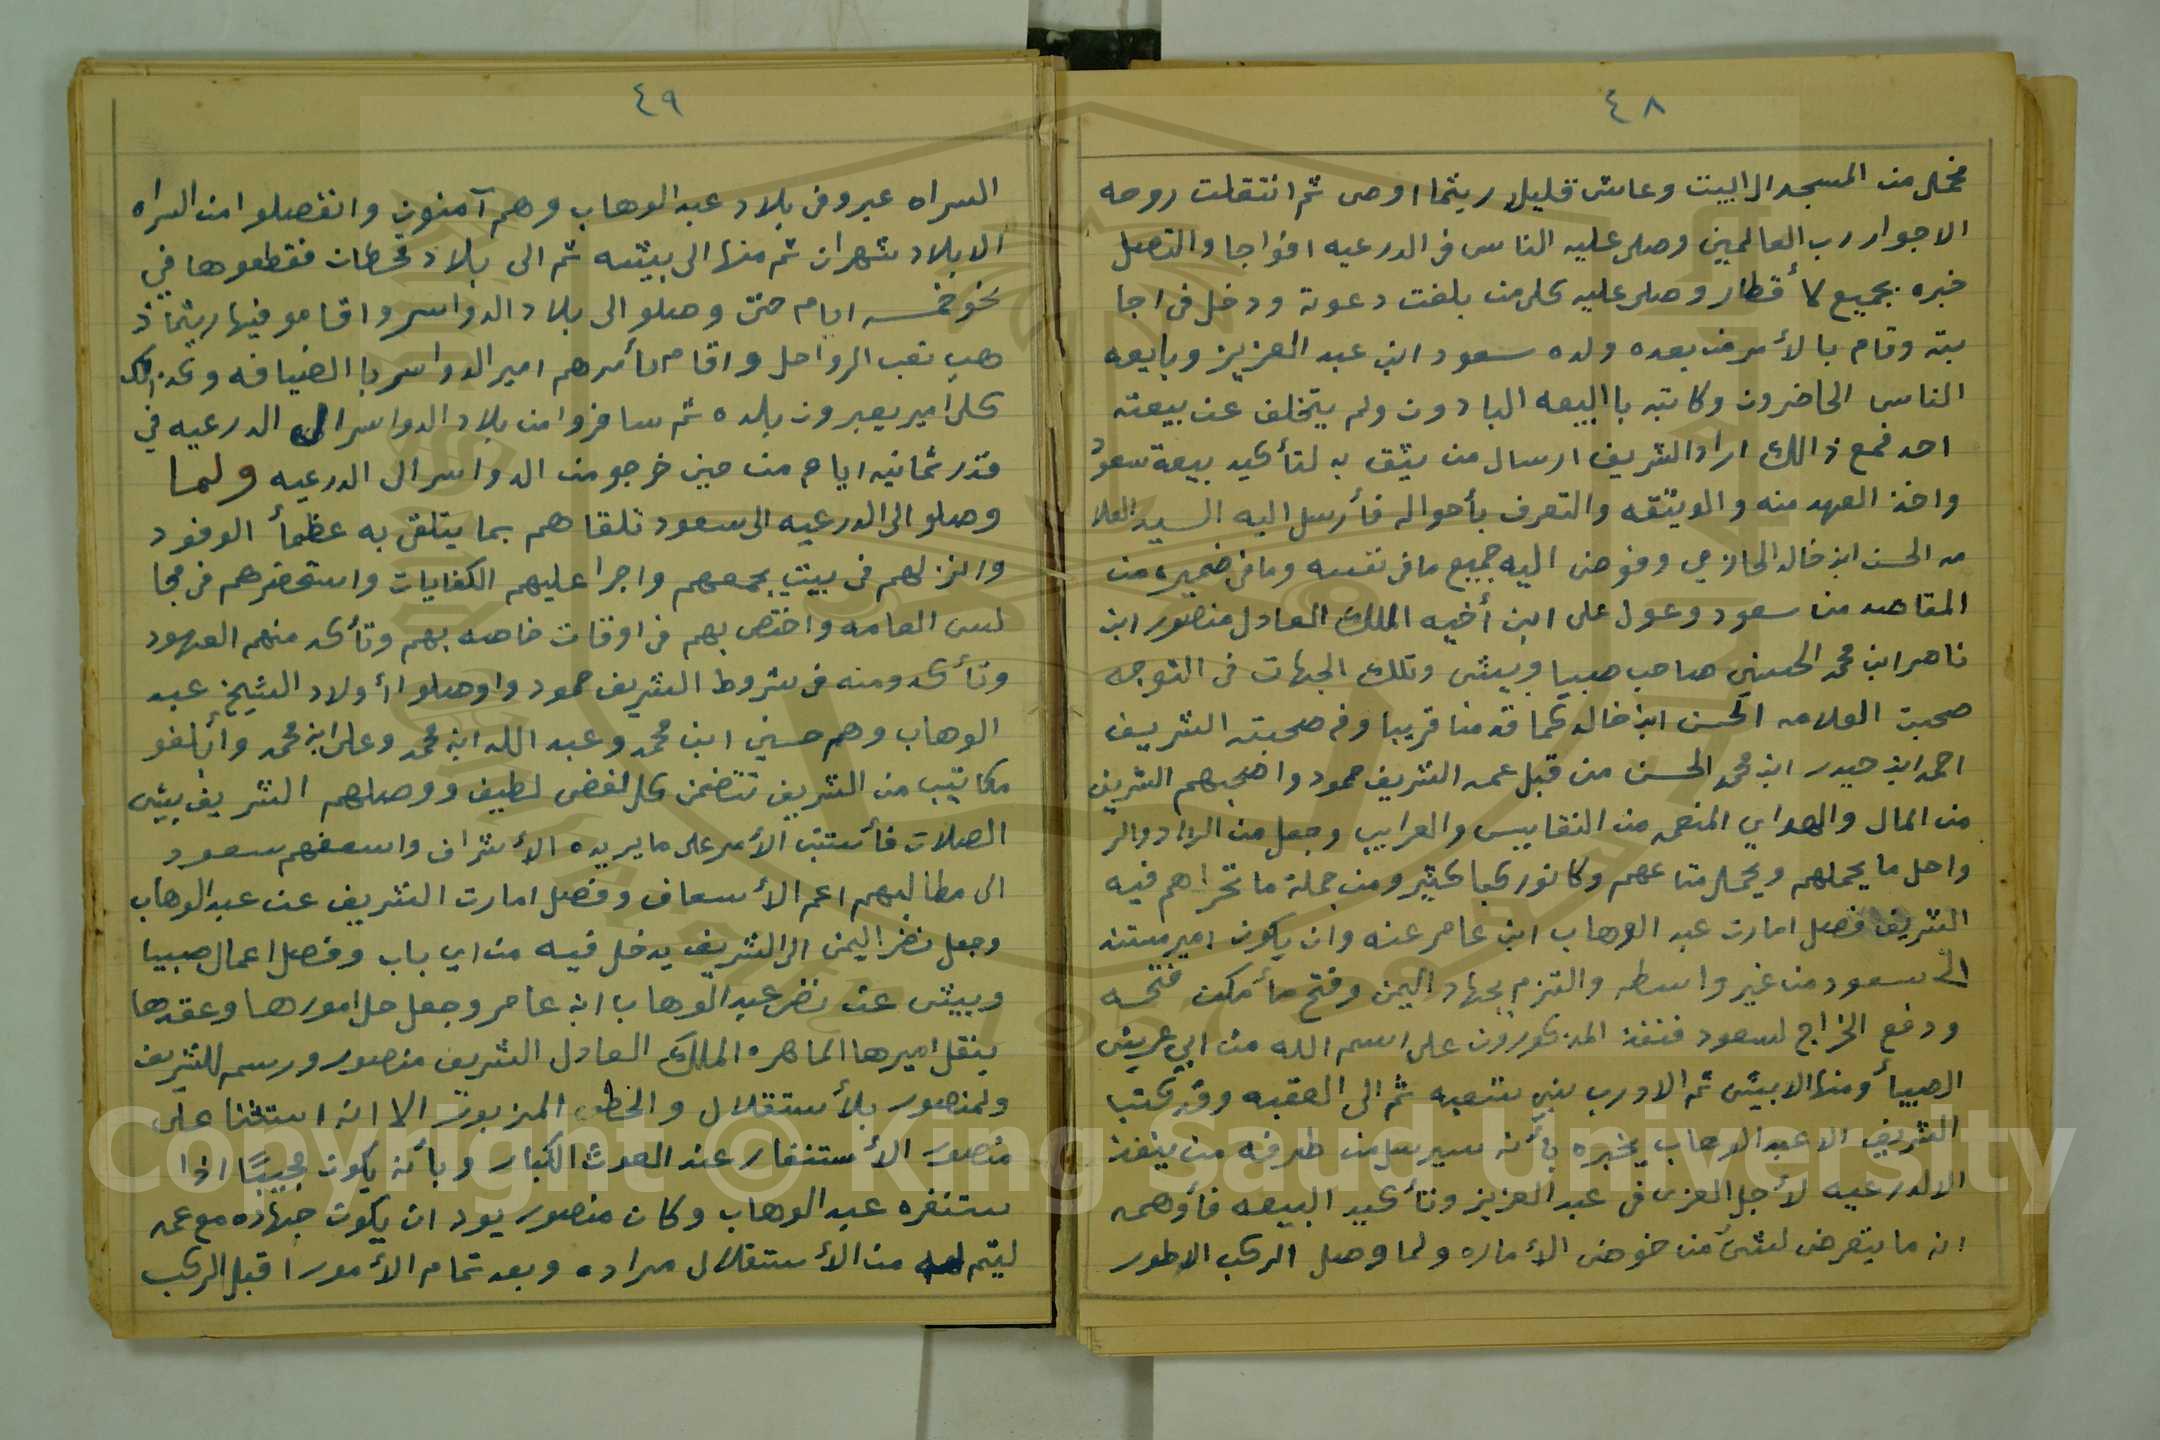 ٤٨
فحمل من المسجد الى البيت وعاش قليلا ريثما اوصى ثم انتقلت روحه
الا جوار رب العالمين وصلى عليه الناس في الدرعيه افواجا واتصل
خبره بجميع الأقطار وصلى عليه كل من بلغت دعوته ودخل في اجا
بته وقام بالأمر من بعده ولده سعود ابن عبد العزيز وبايعه
الناس الحاضرون وكاتبه باالبيعه البادون ولم يتخلف عن بيعته
احد فمع ذالك اراد الشريف ارسال من يثق به لتأكيد بيعة سعود
واخذ العهد منه والوثيقه والتعرف بأحواله فأرسل اليه السيد العلا
مه الحسن ابن خالد الحازمي وفوض اليه جميع ما في نفسه وما في ضميره من
المقاصد من سعود وعول على ابن أخيه الملك العادل منصور ابن
ناصر ابن محمد الحسيني صاحب صبيا وبيش وتلك الجهات في التوجه
صحبت العلامه الحسن ابن خالد كما قدمنا قريبا وفي صحبته الشريف
احمد ابن حيدر ابن محمد الحسن من قبل عمه الشريف حمود واصحبهم الشريف
من المال والهداي المنعمه من النفاييس والعرابيب وجعل من الزاد والر
واحل ما يحملهم ويحمل متاعهم وكانو ركبا كثير ومن جملة ما تحراهم فيه
الشريف فصل امارت عبد الوهاب ابن عامر عنه وان يكون امير مستند
الى سعود من غير واسطه والتزم بجهاد اليمن وفتح ما أمكن فتحه
ودفع الخراج لسعود فنفذ المذكورون على اسم الله من ابي عريش
الصبيأ ومنها الا بيش ثم الا درب بني شعبه ثم الى العقبه وقد كتب
الشريف الا عبد الوهاب يخبره بأنه سيرسل من طرفه من ينفذ
الا الدرعيه لأجل العزى في عبد العزيز وتأكيد البيعه فأوهمه
انه ما يتعرض لشئ من خوض الأماره ولما وصل الركب الا طور
٤٩
السراه عبرو في بلاد عبد الوهاب وهم آمنون وانفصلو امن السراه
الا بلاد شهران ثم منها الى بيشه ثم الى بلاد قحطان فقطعوها في
نحو خمسه ايام حتى وصلو الى بلاد الدواسر واقامو فيها ريثما ذ
هب تعب الرواحل واقام بأمرهم امير الدواسر باالضيافه وكذالك
كل امير يعبرون بلده ثم سافروا من بلاد الدواسر الى الدرعيه في
قدر ثمانيه ايام من حين خرجو من الدواسر الى الدرعيه ولما
وصلو الى الدرعيه الى سعود تلقاهم بما يتلقى به عظمأ الوفود
وانزلهم في بيت يجمعهم واجرا عليهم الكفايات واستحضرهم في مجا
لس العامه واختص بهم في اوقات خاصه بهم وتأكد منهم العهود
وتأكدو منه في شروط الشريف حمود واوصلو اأولاد الشيخ عبد
الوهاب وهم حسين ابن محمد وعبد الله ابن محمد وعلى ابن محمد وأبلغو
مكاتيب من الشريف تتضمن كل لفض لطيف ووصلهم الشريف بيثى
الصلات فأستتب الأمر على ما يريده الأشراف واسعفهم سعود
الى مطالبهم اعم الأسعاف وفصل امارت الشريف عن عبد الوهاب
وجعل نضر اليمن الى الشريف يدخل فيه من اي باب وفصل اعمال صبيا
وبيش عن نضر عبد الوهاب ابن عامر وجعل حل امورها وعقدها
بنقل اميرها الماهره الملك العادل الشريف منصور ورسم للشريف
ولمنصور بلأستقلال والخطه المزبوره الا انه استثنا على
منصور الأستنفار عند العوث الكبار وبأنه يكون مجيبًا اذا
ستنفره عبد الوهاب وكان منصور يود ان يكون جهاده مع عمه
ليتم له من الأستقلال مراده وبعد تمام الأمور اقبل الركب
Copyright © King Saud University